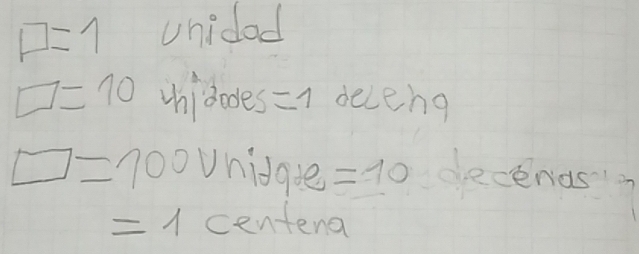 □=1 unidad
□=10 unidades=1 decena
□=100 Unidade=10 decenas
=1 centena